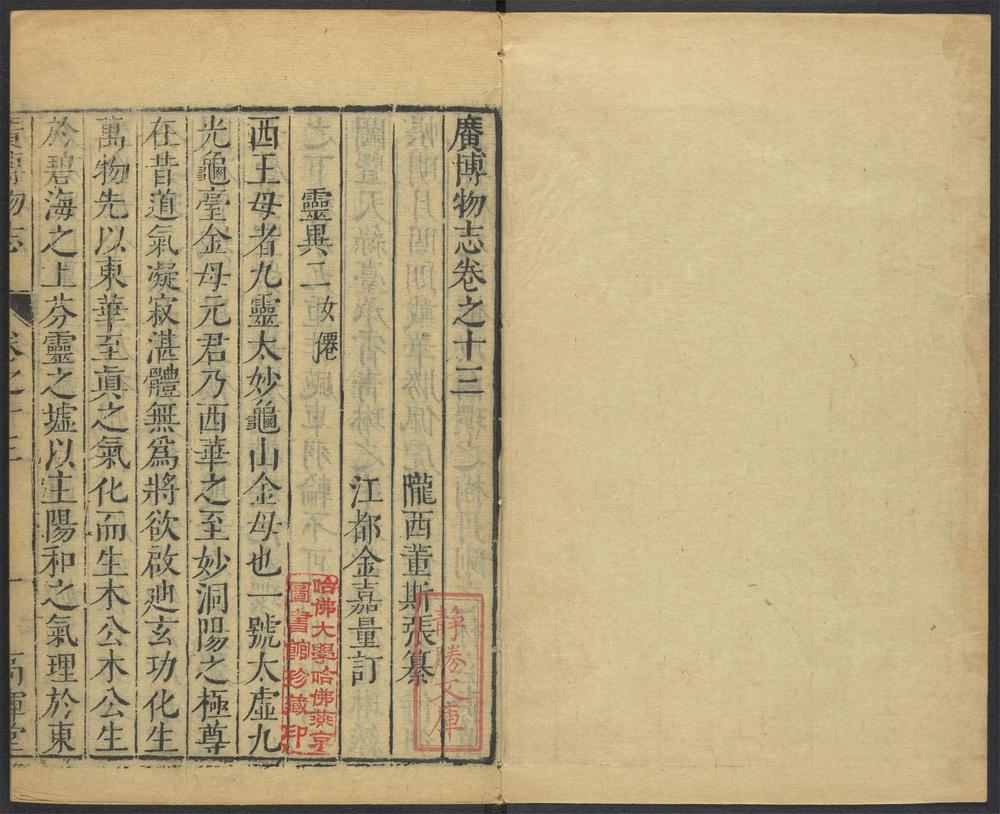 廣博物志卷之十三
隴西董斯張纂
江都金嘉量訂
靈異二 女僊
西王母者九靈太妙龜山金母也一號太虛九
光龜臺金母元君乃西華之至妙洞陽之極尊
在昔道氣凝寂湛體無爲將欲啟迪玄功化生
萬物先以東華至真之氣化而生木公木公生
於碧海之上芬靈之墟以主陽和之氣理於東
廣博物志 卷之十三 一 高暉堂
靜勝文庫
哈佛大學哈佛燕京
圖書館珍藏印